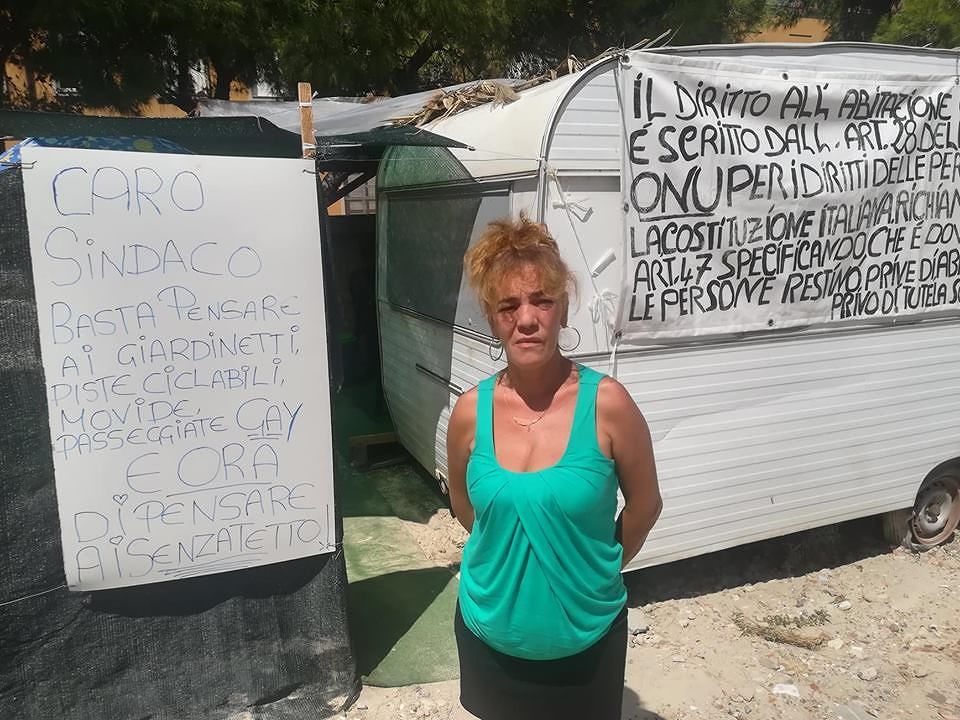 CARO
SINDACO
BASTA PENSARE
AI GIARDINETTI,
PISTE CICLABILI,
MOVIDE,
PASSEGGIATE GAY
E ORA
DI PENSARE
AI SENZATETTO!
IL DIRITTO ALL'ABITAZIONE
É SCRITTO DALL. ART. 28 DELL
ONU PER I DIRITTI DELLE PER
LA COSTITUZIONE ITALIANA. RICHIAM
ART. 47 SPECIFICANDO, CHE É DOV
LE PERSONE RESTINO, PRIVE DI, AB
PRIVO DI TUTELA S